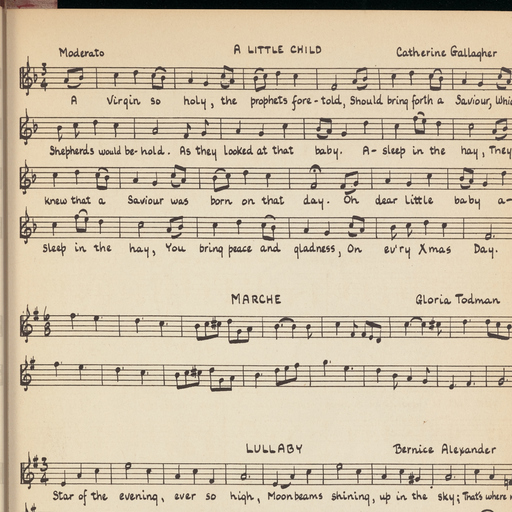 Moderato A LITTLE CHILD Catherine Gallagher
A Virgin so holy, the prophets fore-told, Should bring forth a Saviour, Whi
Shepherds would be-hold. As they looked at that baby. A-sleep in the hay, They
knew that a Saviour was born on that day. Oh dear little baby a-
sleep in the hay, You bring peace and gladness, On ev'ry Xmas Day.
MARCHE Gloria Todman
LULLABY Bernice Alexander
Star of the evening, ever so high, Moonbeams shining, up in the sky; That's where